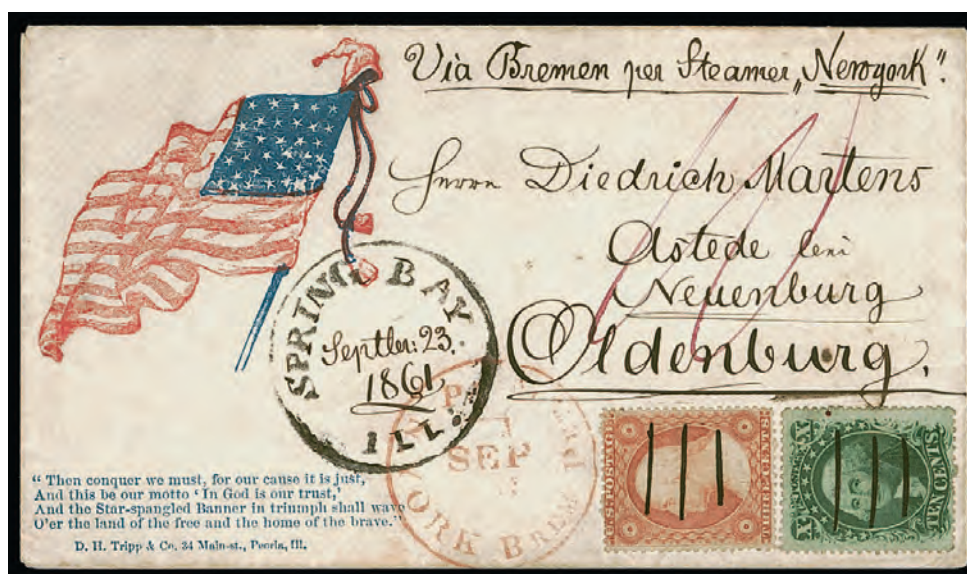 Via Bremen per Steamer „Newyork".
Herrn Diedrich Martens
Astede bei
Neuenburg
Oldenburg.
SPRING BAY.
Septbr: 23.
1861
ILL.
SEP
YORK BREM
U.S. POSTAGE
THREE CENTS
X
X
TEN CENTS
“ Then conquer we must, for our cause it is just,
And this be our motto ‘ In God is our trust,’
And the Star-spangled Banner in triumph shall wave
O'er the land of the free and the home of the brave.”
D. H. Tripp & Co. 34 Main-st., Peoria, Ill.